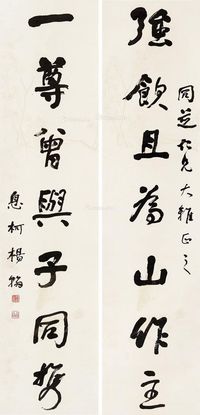 同芝仁兄大雅正之
強飲且為山作主
一尊曾與子同携
息柯楊翰